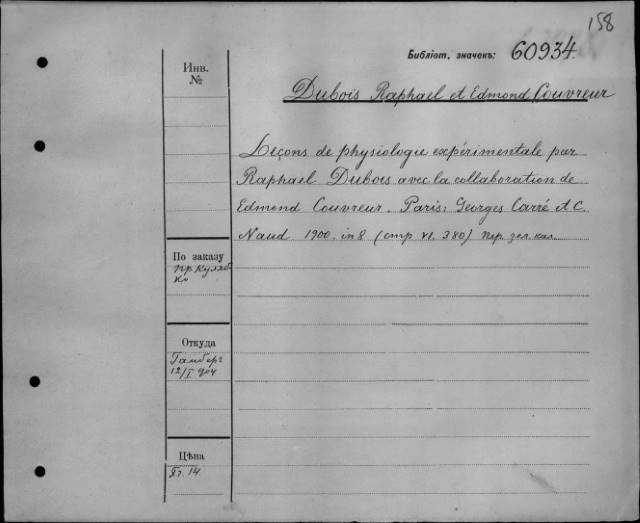 158
Библіот. значекъ: 60934.
Инв.
№
Dubois Raphael et Edmond Couvreur
Leçons de physiologie expérimentale par
Raphael Dubois avec la collaboration de
Edmond Couvreur. Paris: Georges Carré et C.
Naud 1900. in 8 (стр VI. 380) пер. зел. кал.
По заказу
пр. Кулябко
Откуда
Гамберг
12/I 904
Цѣна
Fr. 14